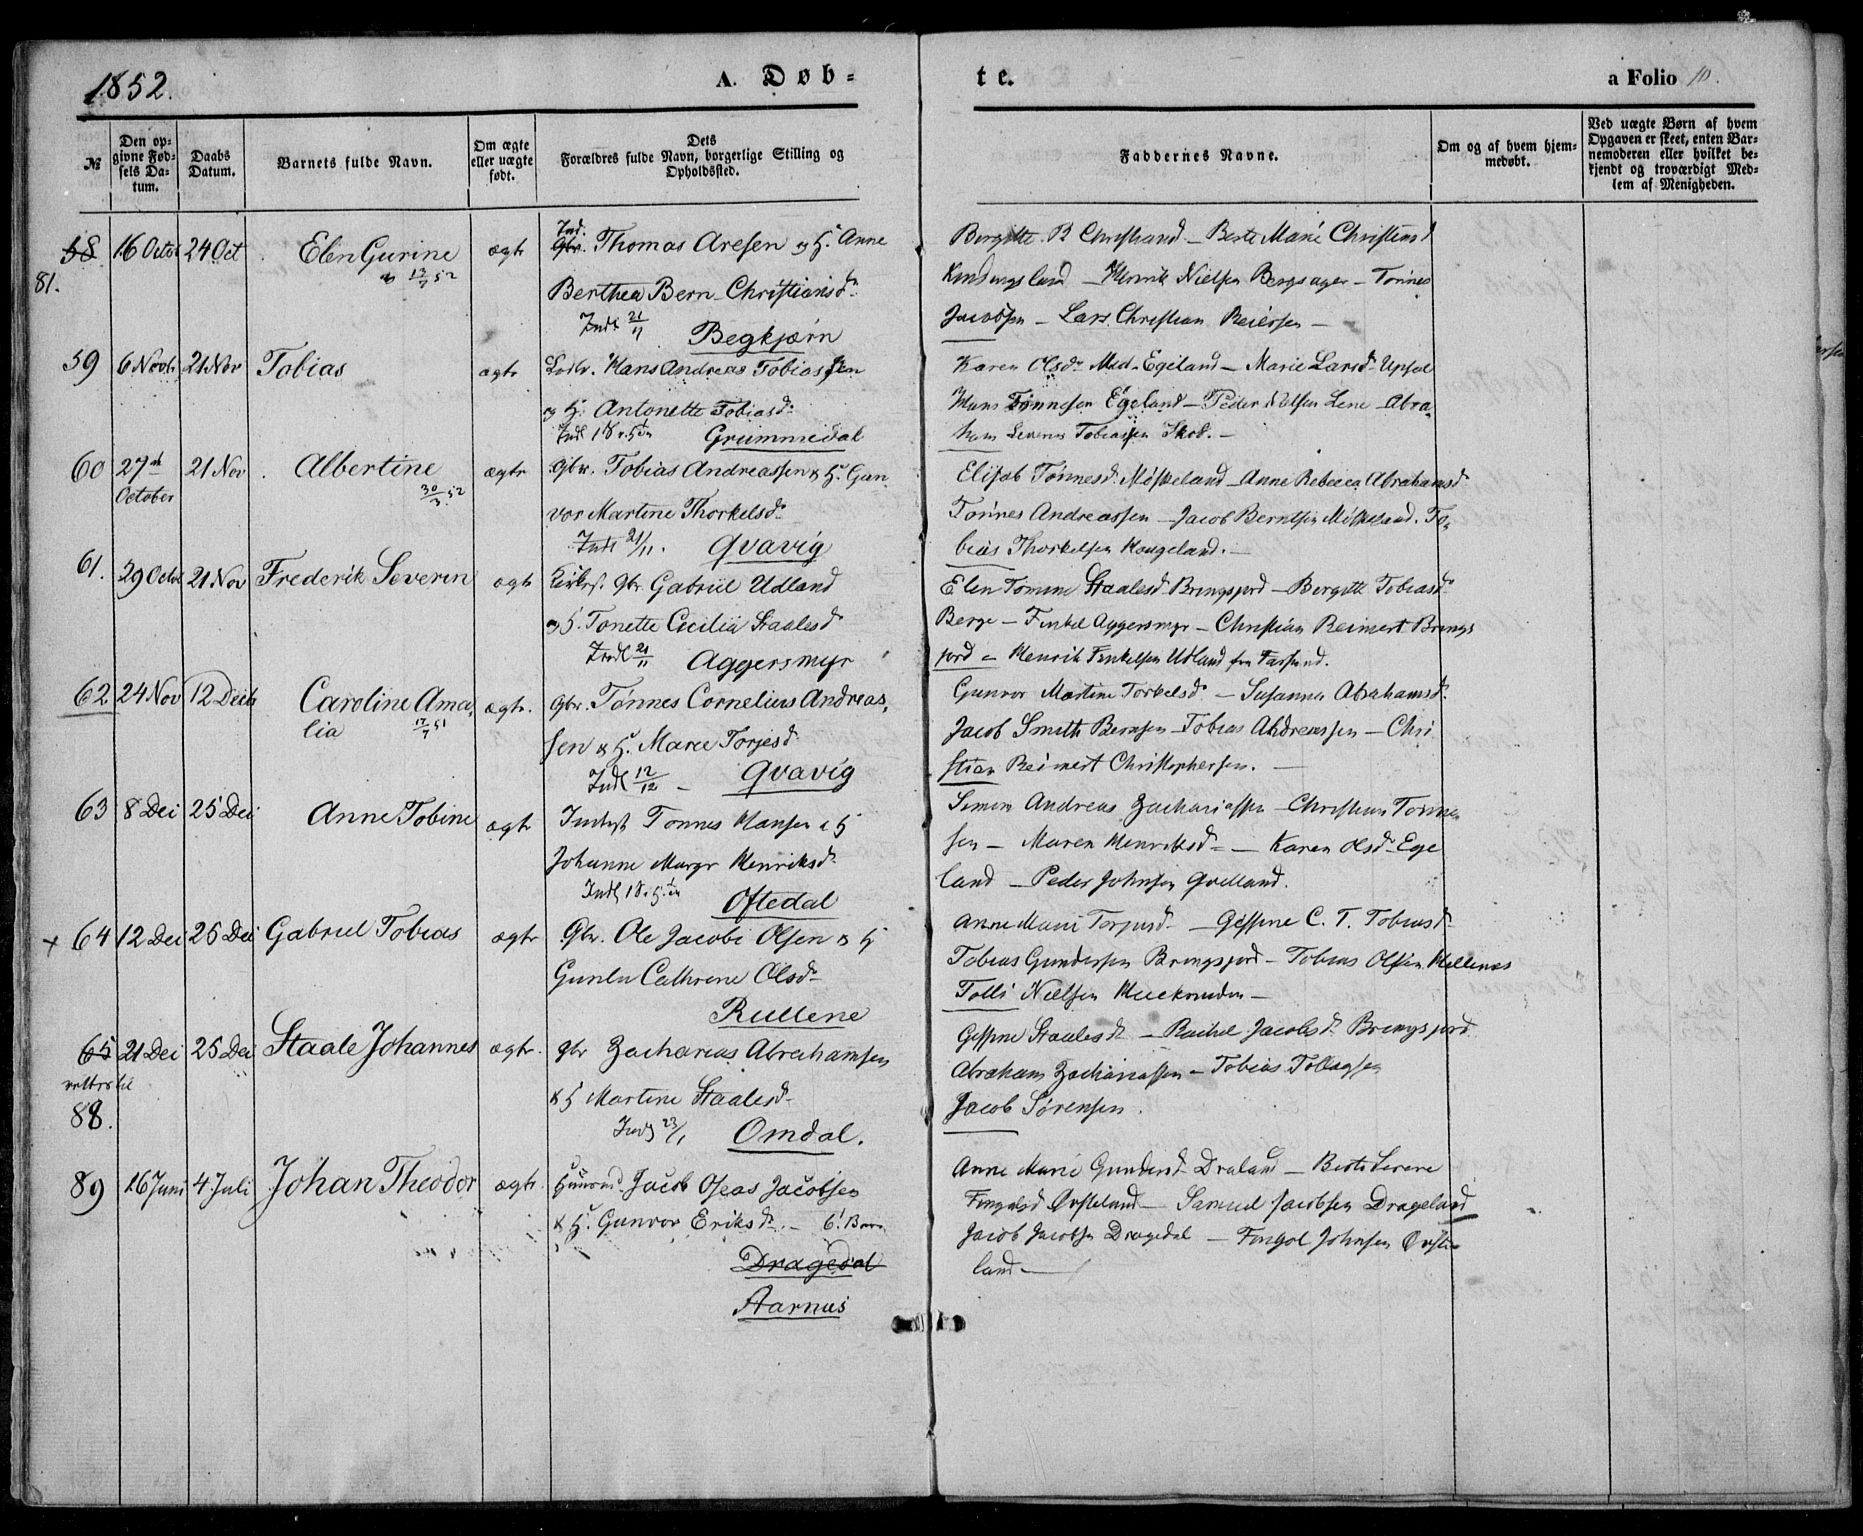 1852.
A. Døb-
te.
a Folio 10.
№
Den op-
givne Fød-
sels Da-
tum.
Daabs
Datum.
Barnets fulde Navn.
Om ægte
eller uægte
født.
Dets
Forældres fulde Navn, borgerlige Stilling og
Opholdssted.
Faddernes Navne.
Om og af hvem hjem-
medøbt.
Ved uægte Børn af hvem
Opgaven er skeet, enten Bar-
nemoderen eller hvilket be-
kjendt og troværdigt Med-
lem af Menigheden.
58 16 Octob 24 Oct Elen Gurine ægte Ind. Gbr. Thomas Aresen og H. Anne
81.
Berthea Bern. Christiansd.
Indl 21/11 Begkjørn
Birgitte B Christiansd — Berte Marie Christensd
Henrik Nielsen Bergsager — Tønnes
Jacobsen — Lars Christian Reiersen —
59 6 Novb. 21 Nov Tobias ægte Hans Andreas Tobiassen
og H. Antonette Tobiasd.
Grummedal
Karen Olsd. Egeland — Marie Larsd.
Hans Tønnesen Egeland — Peder Lene — Abra-
ham Severin Tobiassen —
60 27de October 21 Nov Albertine 30/3 52 ægte Gbr. Tobias Andreassen & H. Gun-
vor Martine Thorkelsd.
Indl 21/11. Qvavig
Elisab Tønnesd. — Anne Rebecca Abrahamsd.
Tønnes Andreassen — Jacob Berntsen. To-
bias Thorkelsen Hougeland. —
61. 29 Octob 21 Nov Frederik Severin ægte Gbr. Gabriel Udland
og H. Tonette Cecilie Staalesd
Indl 21/11 Aggersmyr
Elen Tomine Staalesd. Bringsjord — Bergitte Tobiasd.
Berge — Aggersmyr — Christian Reimert Brings
jord — Henrik Udland fra Farsund.
62 24 Nov 12 Decb Caroline Ama-
lia ægte. Gbr. Tønnes Cornelius Andreas-
sen & H. Maren Torjesd.
Indl 12/12 — Qvavig
Gunvor Martine Torkelsd. — Susanna Abrahamsd.
Jacob Smith Bernsen — Tobias Andreassen — Chri
stian Reimert Christophersen. —
63 8 Dei 25 Dei Anne Tobine ægte Tønnes Hansen & H
Johanne Margr Henriksd.
Oftedal
Simon Andreas Zachariassen — Christian Tønne-
sen — Maren Henriksd. — Karen Olsd. Ege
land — Peder Johnsen Qvelland.
+ 64 12 Dei 26 Dei Gabriel Tobias ægte Gbr. Ole Jacobi Olsen & H
Gunla Cathrine Olsd.
Rullene
Anne Marie Torjusd. — Gessine C. T. Tobiasd.
Tobias Gundersen Bringsjord — Tobias Olsen Hellenes
Tolli Nielsen —
65 21 Dei 25 Dei Staale Johannes ægte. Gbr Zacharias Abrahamsen
rettes til
88.
& H Martine Staalesd.
23/1 Omdal.
Gessine Staalesd. — Rachel Jacobsd. Bringsjord
Abraham Zachariassen — Tobias Tollagsen
Jacob Sørensen.
89 16 Juni 4 Juli Johan Theodor ægte. Jacob Oseas Jacobsen
& H. Gunvor Eriksd. — 6. Barn
Dragedal
Aarnes
Anne Marie Gundersd. Draland — Berte Serene
Fingalsd Øvsteland — Samuel Jacobsen Drageland
Jacob Jacobsen Dragedal — Fingal Johnsen Øvste-
land —